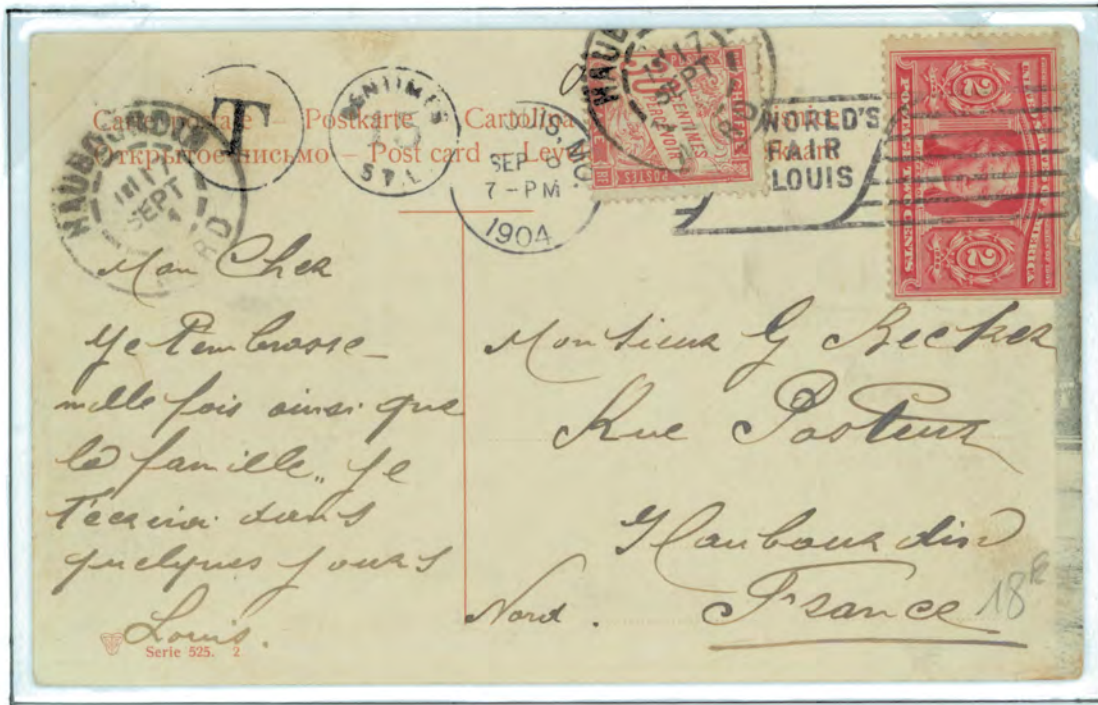 Carte postale – Postkarte – Cartolina
Открытое письмо – Post card – Leve
T
CENTIMES
ST. L.
LOUIS, MO.
SEP 6
7-PM
1904
WORLD'S
FAIR
LOUIS
HAUBOURDIN
17
SEPT
30
CENTIMES
A PERCEVOIR
POSTES
2
2
CENTS
Mon Cher
Je t'embrasse
mille fois ainsi que
la famille, je
t'écrirai dans
quelques jours
Louis.
Serie 525. 2
Monsieur G Becker
Rue Pasteur
Haubourdin
Nord. France
18